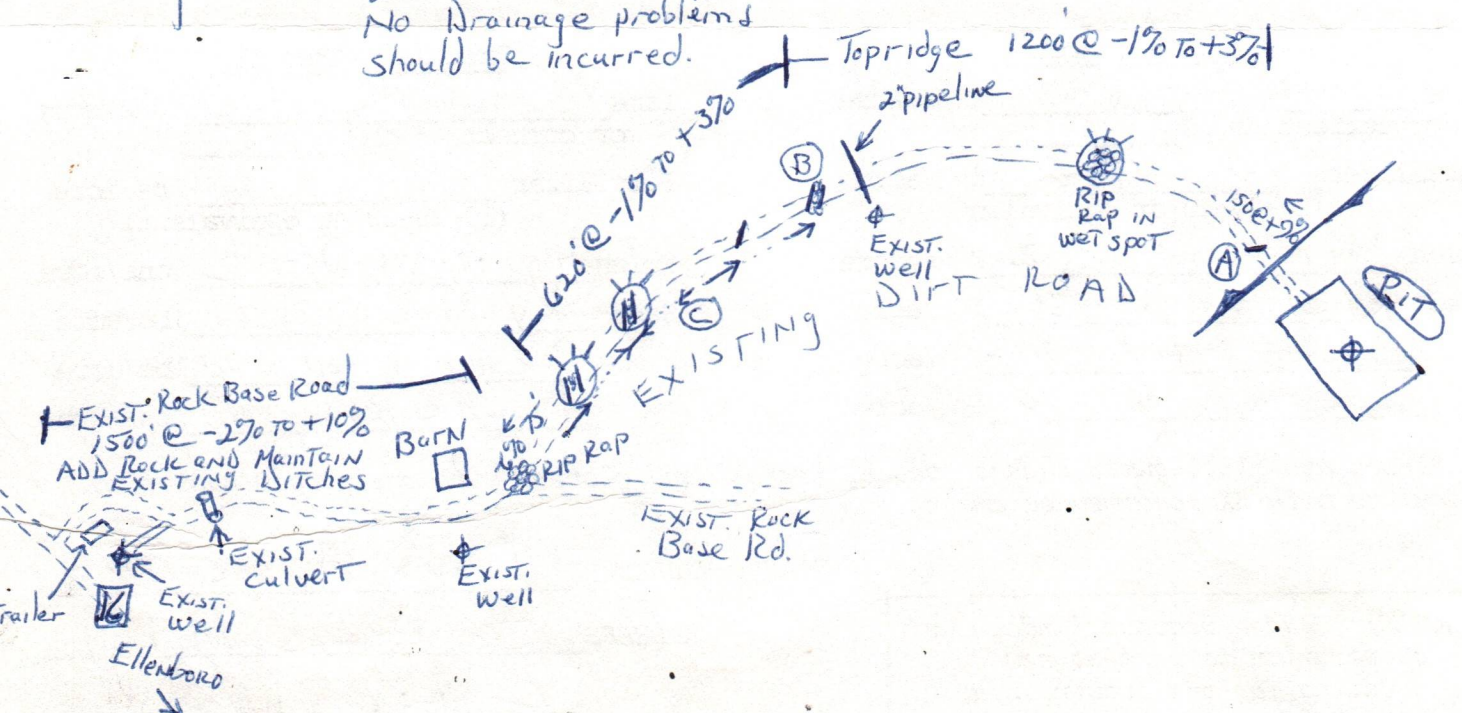 No Drainage problems
should be incurred.
Topridge 1200' @ -1% To +3%
2" pipeline
620' @ -1% To +3%
B
Rip
Rap in
wet spot
150' @ +9%
A
Pit
Exist.
well
Dirt Road
C
Existing
Exist. Rock Base Road
1500' @ -2% To +10%
Add Rock and Maintain
Existing Ditches
Barn
Rip Rap
Exist. Rock
Base Rd.
Exist.
Culvert
Exist.
well
Exist.
well
Trailer
16
Ellenboro